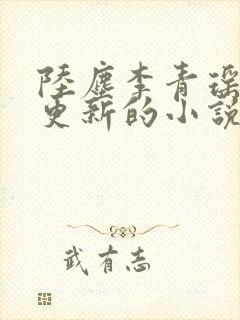 陸塵李青瑤
更新的小說
武有志